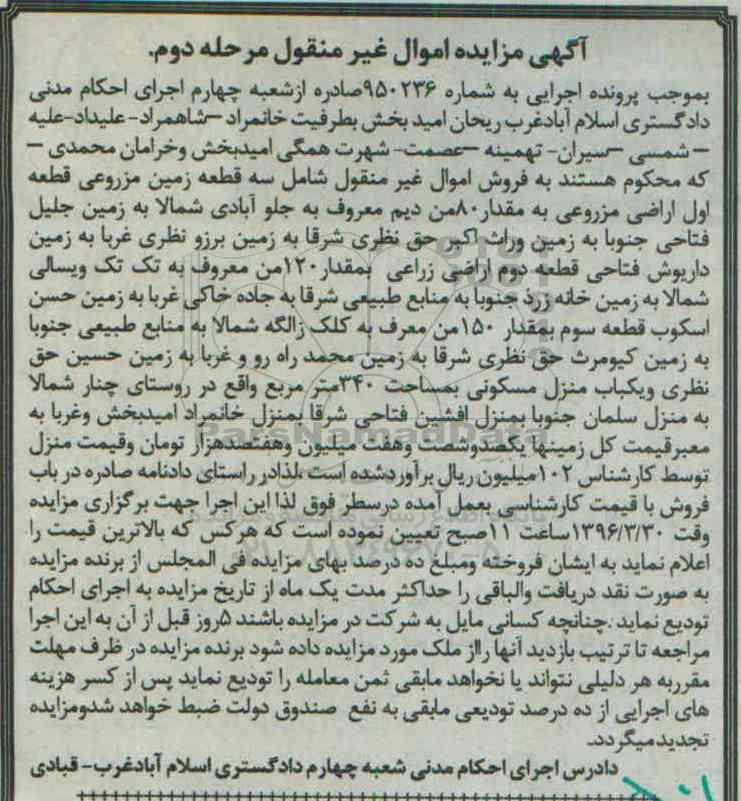 آگهی مزایده اموال غیر منقول مرحله دوم.
بموجب پرونده اجرایی به شماره ۹۵۰۲۳۶صادره ازشعبه چهارم اجرای احکام مدنی
دادگستری اسلام آبادغرب ریحان امید بخش بطرفیت خانمراد –شاهمراد- علیداد-علیه
– شمسی –سیران- تهمینه –عصمت- شهرت همگی امیدبخش وخرامان محمدی –
که محکوم هستند به فروش اموال غیر منقول شامل سه قطعه زمین مزروعی قطعه
اول اراضی مزروعی به مقدار۸۰من دیم معروف به جلو آبادی شمالا به زمین جلیل
فتاحی جنوبا به زمین وراث اکبر حق نظری شرقا به زمین برزو نظری غربا به زمین
داریوش فتاحی قطعه دوم اراضی زراعی بمقدار۱۲۰من معروف به تک تک ویسالی
شمالا به زمین خانه زرد جنوبا به منابع طبیعی شرقا به جاده خاکی غربا به زمین حسن
اسکوب قطعه سوم بمقدار ۱۵۰من معرف به کلک زالگه شمالا به منابع طبیعی جنوبا
به زمین کیومرث حق نظری شرقا به زمین محمد راه رو و غربا به زمین حسین حق
نظری ویکباب منزل مسکونی بمساحت ۳۴۰متر مربع واقع در روستای چنار شمالا
به منزل سلمان جنوبا بمنزل افشین فتاحی شرقا بمنزل خانمراد امیدبخش وغربا به
معبرقیمت کل زمینها یکصدوشصت وهفت میلیون وهفتصدهزار تومان وقیمت منزل
توسط کارشناس ۱۰۲میلیون ریال برآوردشده است ،لذادر راستای دادنامه صادره در باب
فروش با قیمت کارشناسی بعمل آمده درسطر فوق لذا این اجرا جهت برگزاری مزایده
وقت ۱۳۹۶/۳/۳۰ساعت ۱۱صبح تعیین نموده است که هرکس که بالاترین قیمت را
اعلام نماید به ایشان فروخته ومبلغ ده درصد بهای مزایده فی المجلس از برنده مزایده
به صورت نقد دریافت والباقی را حداکثر مدت یک ماه از تاریخ مزایده به اجرای احکام
تودیع نماید .چنانچه کسانی مایل به شرکت در مزایده باشند ۵روز قبل از آن به این اجرا
مراجعه تا ترتیب بازدید آنها رااز ملک مورد مزایده داده شود برنده مزایده در ظرف مهلت
مقرربه هر دلیلی نتواند یا نخواهد مابقی ثمن معامله را تودیع نماید پس از کسر هزینه
های اجرایی از ده درصد تودیعی مابقی به نفع صندوق دولت ضبط خواهد شدومزایده
تجدیدمیگردد.
دادرس اجرای احکام مدنی شعبه چهارم دادگستری اسلام آبادغرب- قبادی
ParsNamadData